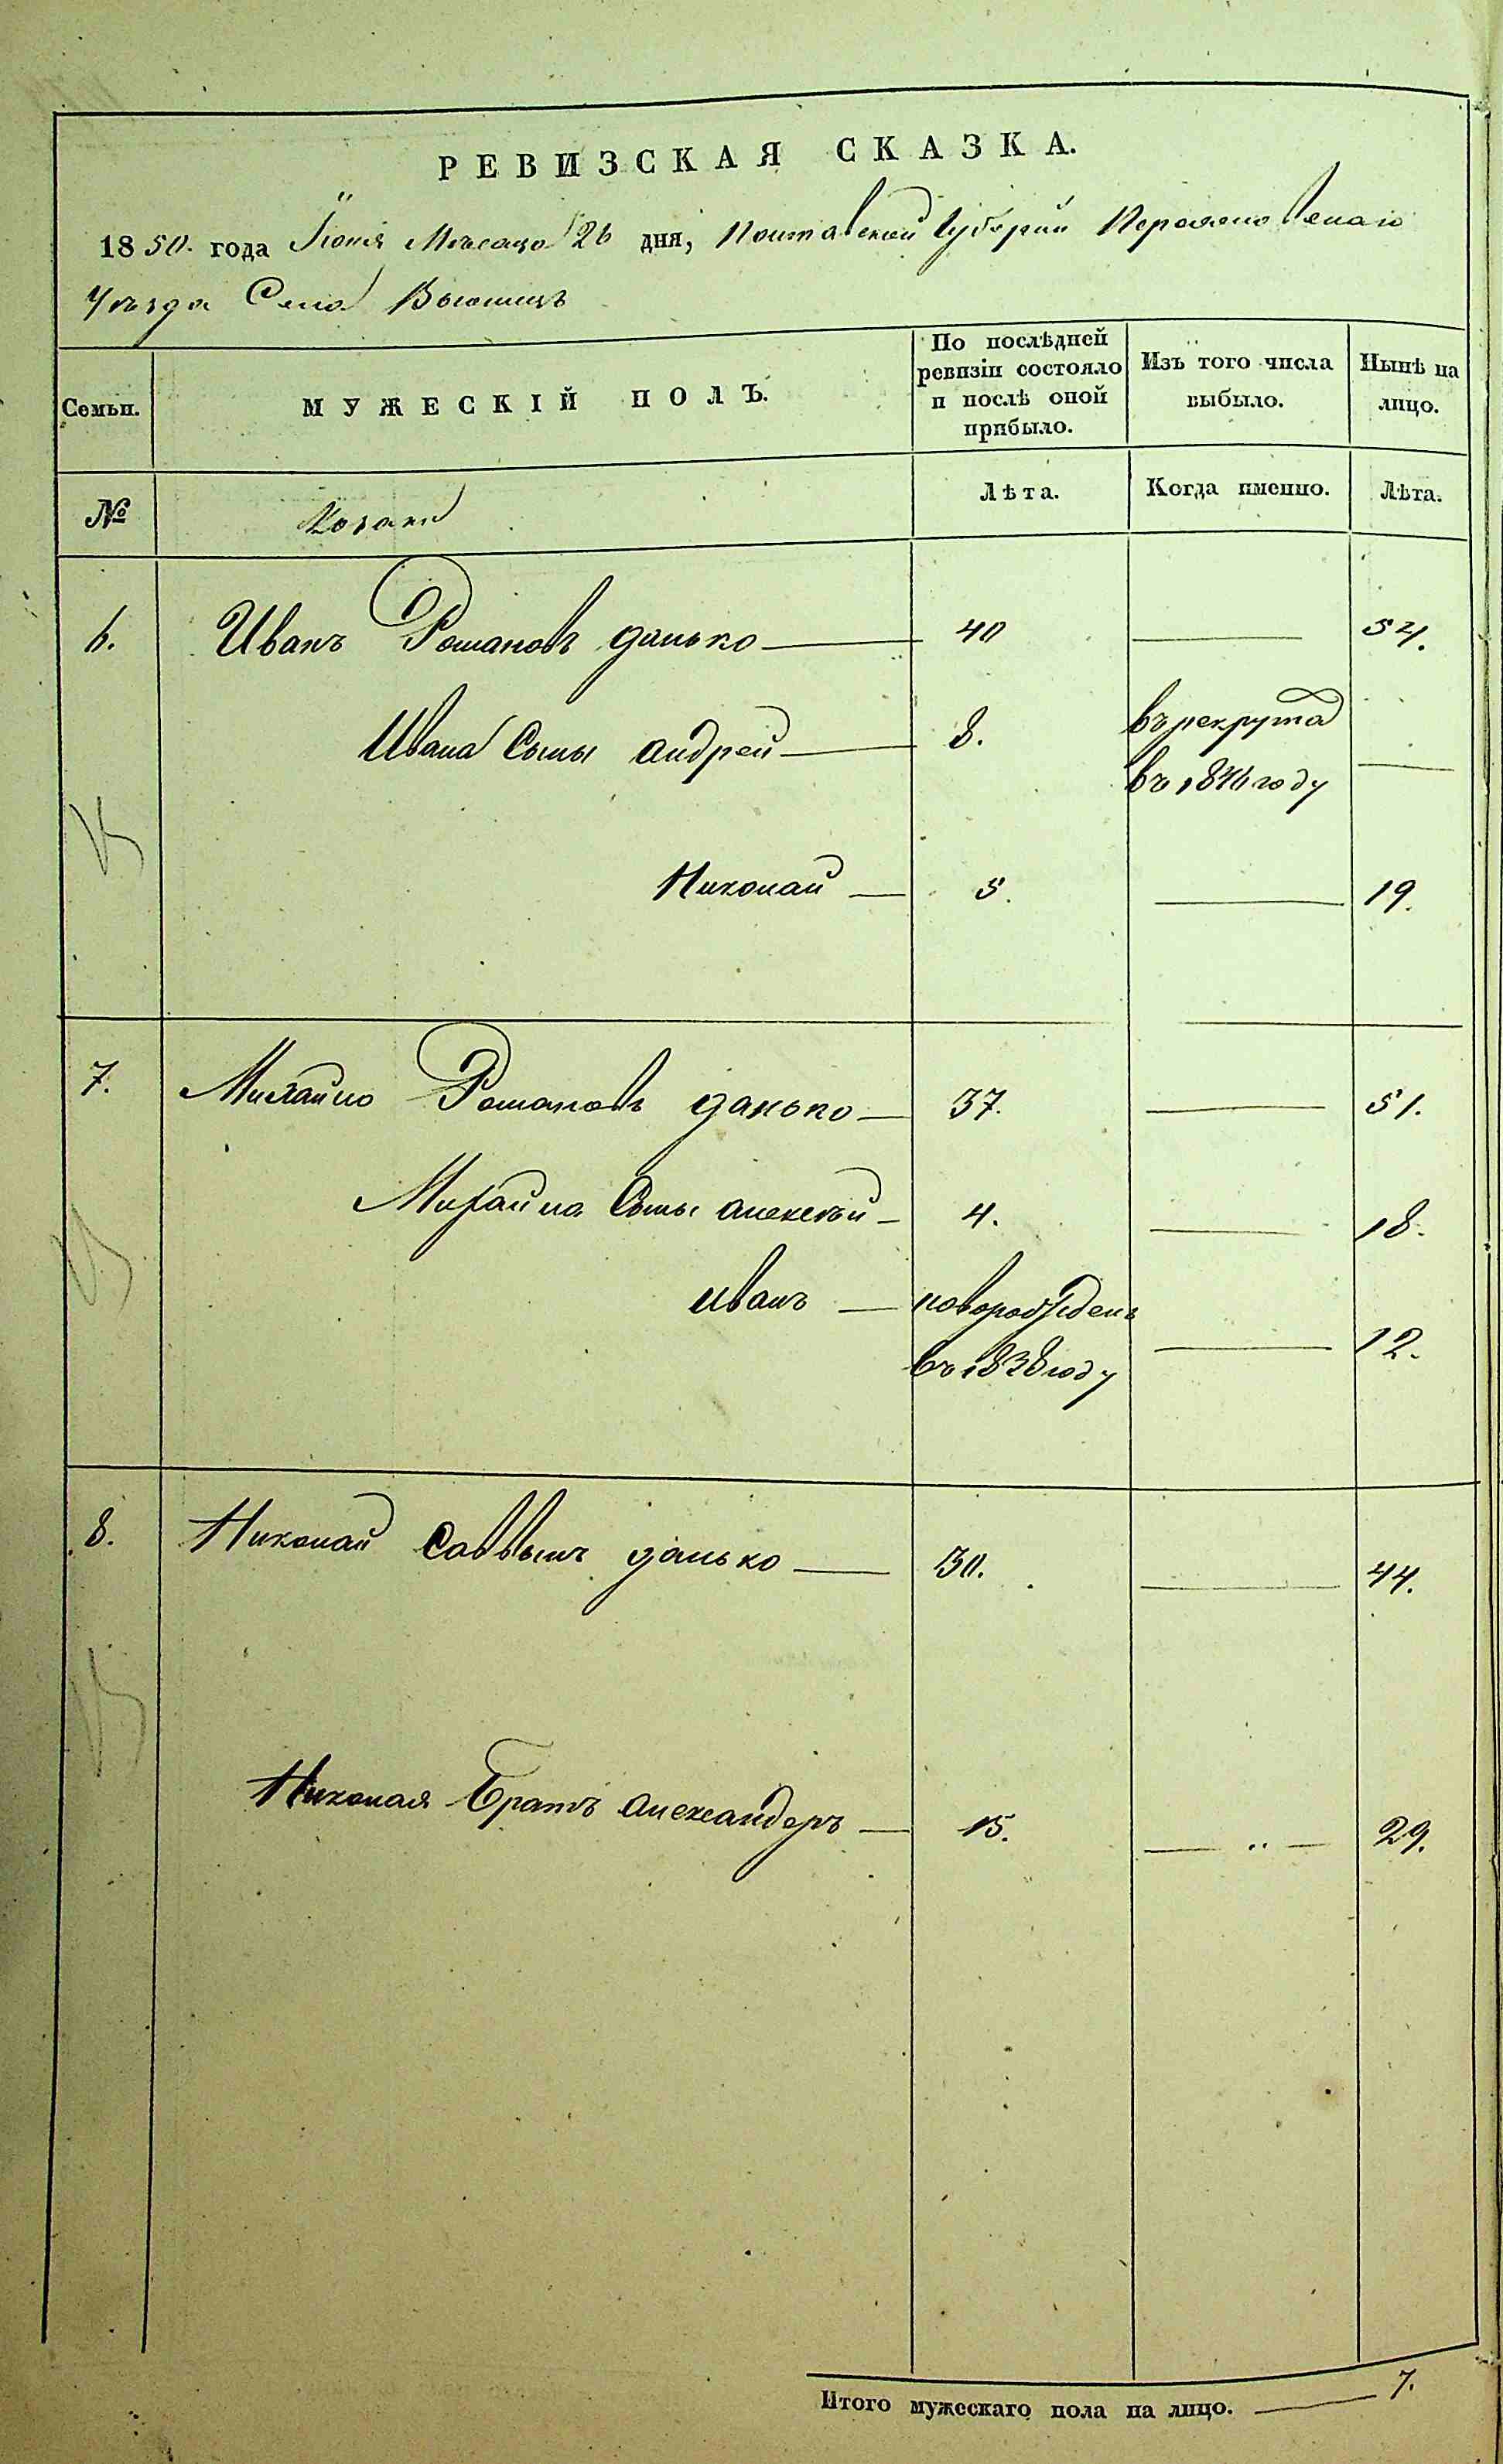 РЕВИЗСКАЯ СКАЗКА.
1850. года Іюня Мѣсяца 26 дня, Полтавской Губерніи Переяславскаго
Уѣзда Села Вьюнищъ
Семьи.
МУЖЕСКІЙ ПОЛЪ.
По послѣдней
ревизіи состояло
и послѣ оной
прибыло.
Изъ того числа
выбыло.
Нынѣ на
лицо.
№ Козаки Лѣта. Когда именно. Лѣта.
6. Иванъ Романовъ Данько — 40 — 54.
Ивана Сыны Андрей — 8. въ рекрута
въ 1846 году —
Николай — 5. — 19.
7. Михайло Романовъ Данько — 37. — 51.
Михайла Сыны Алексѣй — 4. — 18.
Иванъ — новорожденъ
въ 1838 году — 12.
8. Николай Саввинъ Данько — 30. — 44.
Николая Братъ Александеръ — 15. — „ — 29.
Итого мужескаго пола на лицо. — 7.